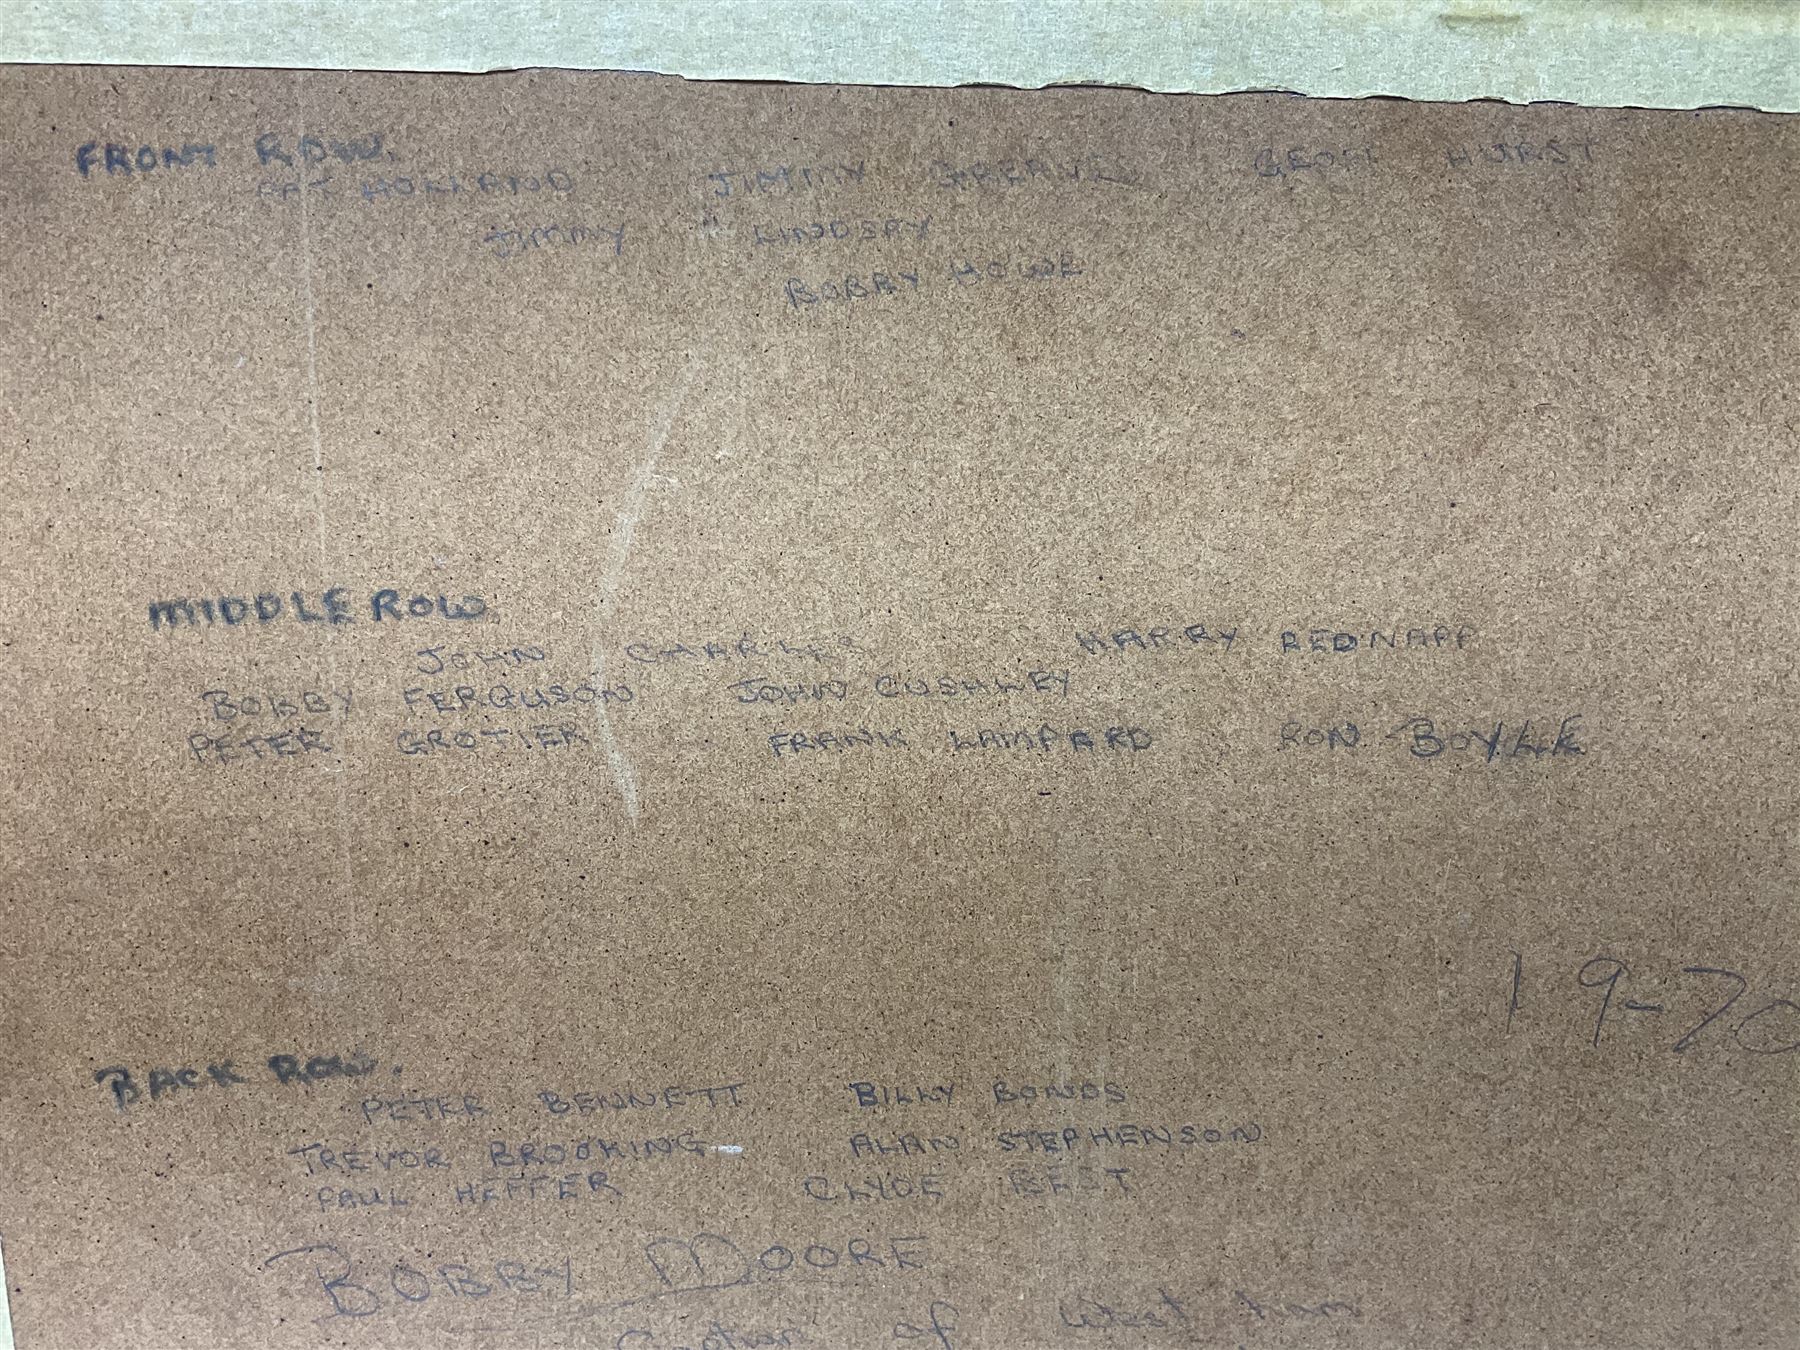 FRONT ROW.
PAT HOLLAND JIMMY GREAVES GEOFF HURST
JIMMY LINDSAY
BOBBY HOWE
MIDDLE ROW.
JOHN CHARLES HARRY REDNAPP
BOBBY FERGUSON JOHN CUSHLEY
PETER GROTIER FRANK LAMPARD RON BOYLLE
19-70
BACK ROW.
PETER BENNETT BILLY BONDS
TREVOR BROOKING ALAN STEPHENSON
PAUL HEFFER CLYDE BEST
BOBBY MOORE
of West Ham